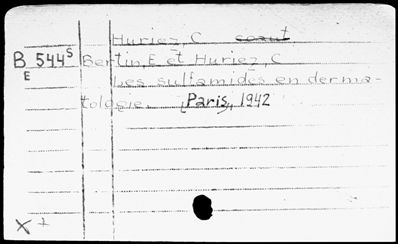 Huriez, C
B 544 S Bertin, E. et Huriez, C
E
Les sulfamides en derma-
tologie. [Paris], 1942
X +